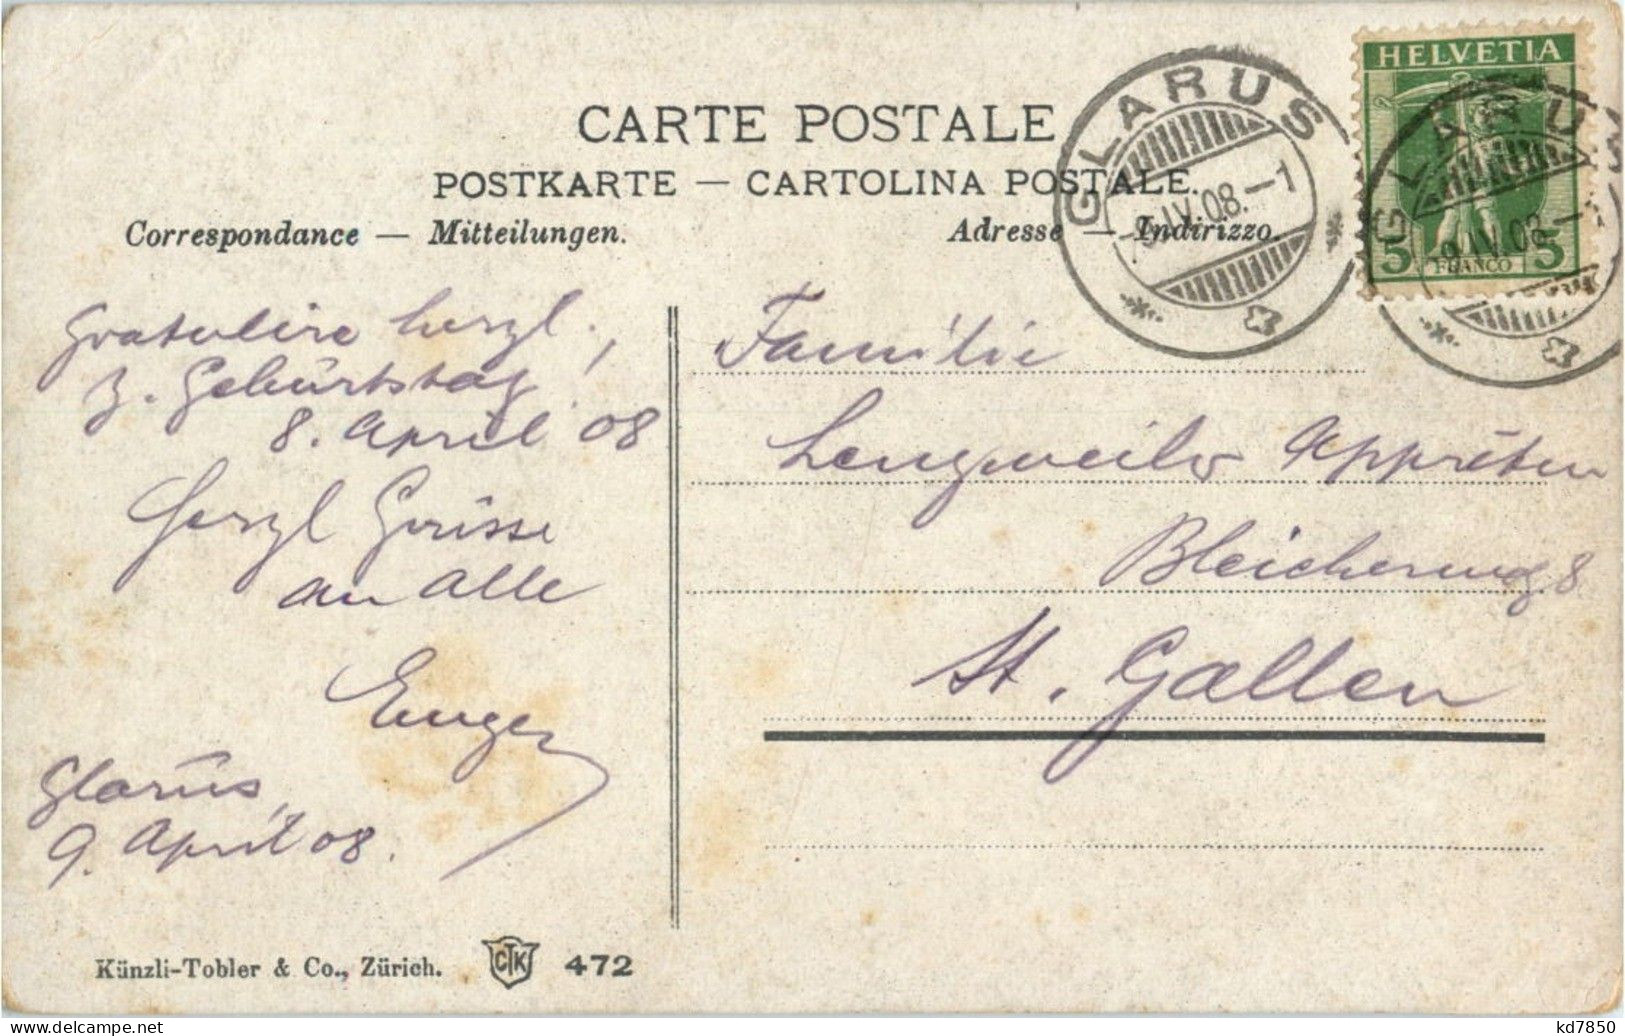 CARTE POSTALE
POSTKARTE — CARTOLINA POSTALE.
Correspondance — Mitteilungen.
Adresse — Indirizzo.
GLARUS
9.IV.08.—1
HELVETIA
5 FRANCO 5
GLARUS
9.IV.08.—1
Gratulire herzl.
z. Geburtstag!
8. April 08
Herzl Grüsse
an alle
Eugen
Glarus,
9. April 08.
Familie
Lengweiler
Bleicherweg 8
St. Gallen
Künzli-Tobler & Co., Zürich.
CTK
472
delcampe.net
kd7850